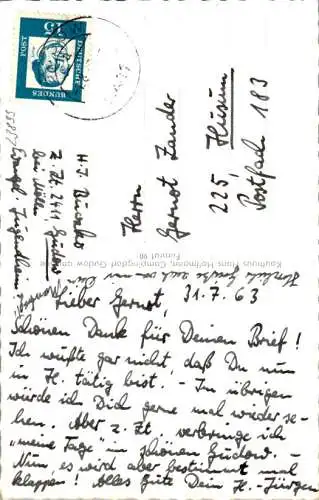 Lieber Gernot,
31.7.63
Schönen Dank für Deinen Brief!
Ich wußte gar nicht, daß Du nun
in H. tätig bist. - Im übrigen
würde ich Dich gerne mal wieder se-
hen. Aber z. Zt. verbringe ich
"meine Tage" im schönen Gudow. -
Nun, es wird aber bestimmt mal
klappen! Alles Gute Dein H.-Jürgen
Herzliche Grüße auch von
Herrn
Gernot Zander
225, Husum
Postfach 183
H.J. Buscher
z. Zt. 2411 Gudow
bei Mölln
Evangl. Jugendheim
Kaufhaus Hans Hoffmann, Campingdorf Gudow
Fernruf 90
15
DEUTSCHE
BUNDES
POST